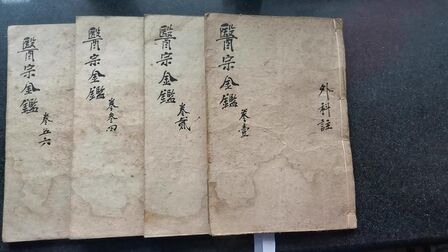 外科註
醫宗金鑑
卷壹
醫宗金鑑
卷貳
醫宗金鑑
卷叁四
醫宗金鑑
卷五六